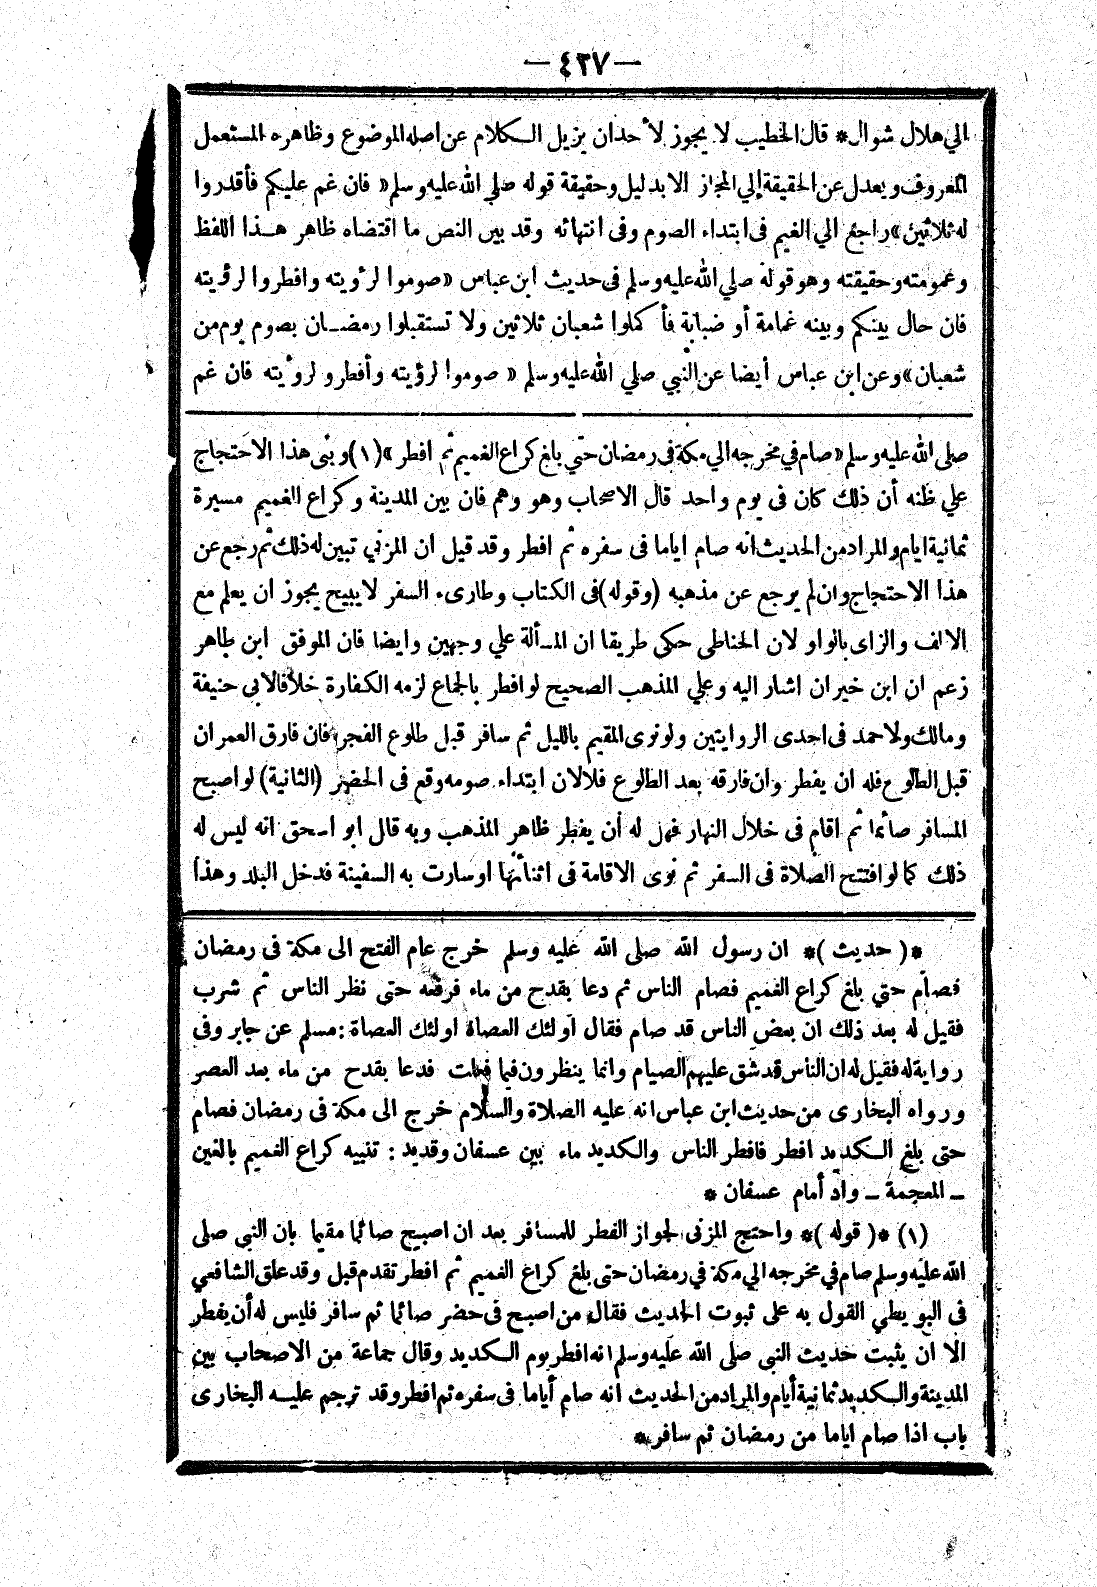 — ٤٢٧ —
الي هلال شوال * قال الخطيب لا يجوز لأحد ان يزيل الكلام عن اصله الموضوع وظاهره المستعمل
المعروف ويعدل عن الحقيقة إلي المجاز الا بدليل وحقيقة قوله صلي الله عليه وسلم « فان غم عليكم فأقدروا
له ثلاثين » راجع الي الغيم فى ابتداء الصوم وفى انتهائه وقد بين النص ما اقتضاه ظاهر هذا اللفظ
وعمومته وحقيقته وهو قوله صلي الله عليه وسلم فى حديث ابن عباس « صوموا لرؤيته وافطروا لرؤيته
فان حال بينكم وبينه غمامة أو ضبابة فأكملوا شعبان ثلاثين ولا تستقبلوا رمضان بصوم يوم من
شعبان » وعن ابن عباس أيضا عن النبي صلي الله عليه وسلم « صوموا لرؤيته وأفطرو لرؤيته فان غم
صلى الله عليه وسلم « صام في مخرجه الي مكة فى رمضان حتي بلغ كراع الغميم ثم افطر » (١) وبنى هذا الاحتجاج
علي ظنه أن ذلك كان فى يوم واحد قال الاصحاب وهو وهم فان بين المدينة وكراع الغميم مسيرة
ثمانية ايام والمراد من الحديث انه صام اياما فى سفره ثم افطر وقد قيل ان المزني تبين له ذلك ثم رجع عن
هذا الاحتجاج وان لم يرجع عن مذهبه (وقوله) فى الكتاب وطارىء السفر لا يبيح يجوز ان يعلم مع
الالف والزاى بالواو لان الحناطى حكى طريقا ان المسألة علي وجهين وايضا فان الموفق ابن طاهر
زعم ان ابن خيران اشار اليه وعلي المذهب الصحيح لو افطر بالجماع لزمه الكفارة خلافا لابي حنيفة
ومالك ولاحمد فى احدى الروايتين ولو نوى المقيم بالليل ثم سافر قبل طلوع الفجر فان فارق العمران
قبل الطلوع فله ان يفطر وان فارقه بعد الطلوع فلا لان ابتداء صومه وقع فى الحضر (الثانية) لو اصبح
المسافر صائما ثم اقام فى خلال النهار فهل له أن يفطر ظاهر المذهب وبه قال ابو اسحق انه ليس له
ذلك كما لو افتتح الصلاة فى السفر ثم نوى الاقامة فى اثنائها او سارت به السفينة فدخل البلد وهذا
* ( حديث ) * ان رسول الله صلى الله عليه وسلم خرج عام الفتح الى مكة فى رمضان
فصام حتي بلغ كراع الغميم فصام الناس ثم دعا بقدح من ماء فرفعه حتى نظر الناس ثم شرب
فقيل له بعد ذلك ان بعض الناس قد صام فقال اولئك العصاة اولئك العصاة : مسلم عن جابر وفى
رواية له فقيل له ان الناس قد شق عليهم الصيام وانما ينظرون فيما فعلت فدعا بقدح من ماء بعد العصر
ورواه البخارى من حديث ابن عباس انه عليه الصلاة والسلام خرج الى مكة فى رمضان فصام
حتى بلغ الكديد افطر فافطر الناس والكديد ماء بين عسفان وقديد : تنبيه كراع الغميم بالغين
ــ المعجمة ــ واد أمام عسفان *
(١) * ( قوله ) * واحتج المزنى لجواز الفطر للمسافر بعد ان اصبح صائما مقيما بان النبى صلى
الله عليه وسلم صام في مخرجه الي مكة في رمضان حتى بلغ كراع الغميم ثم افطر تقدم قبل وقد علق الشافعي
فى البويطي القول به على ثبوت الحديث فقال من اصبح فى حضر صائما ثم سافر فليس له أن يفطر
الا ان يثبت حديث النبى صلى الله عليه وسلم انه افطر يوم الكديد وقال جماعة من الاصحاب بين
المدينة والكديد ثمانية أيام والمراد من الحديث انه صام أياما فى سفره ثم افطر وقد ترجم عليه البخارى
باب اذا صام اياما من رمضان ثم سافر *